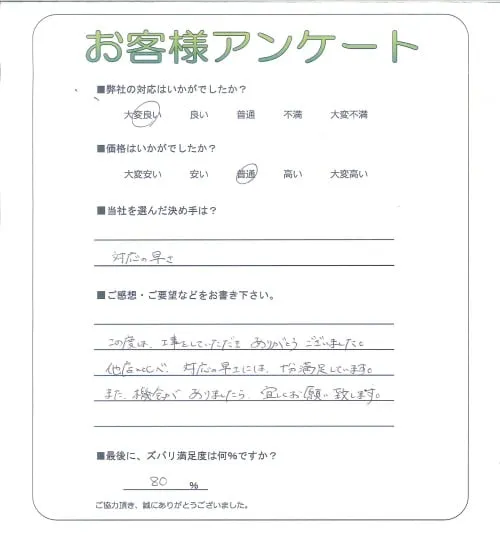 お客様アンケート
■弊社の対応はいかがでしたか？
大変良い 良い 普通 不満 大変不満
■価格はいかがでしたか？
大変安い 安い 普通 高い 大変高い
■当社を選んだ決め手は？
対応の早さ
■ご感想・ご要望などをお書き下さい。
この度は、工事をしていただき ありがとう ございました。
他店にくらべ、対応の早さには、十分満足しています。
また、機会が ありましたら、宜しくお願い致します。
■最後に、ズバリ満足度は何%ですか？
80 %
ご協力頂き、誠にありがとうございました。